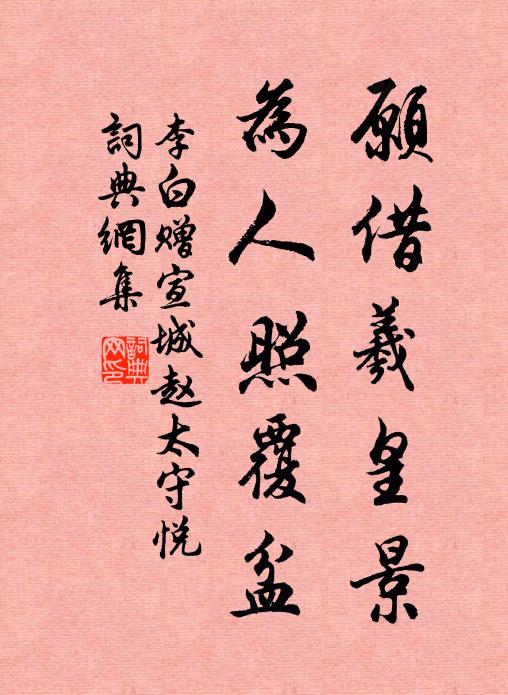 願借羲皇景
為人照覆盆
李白赠宣城赵太守悦
詞典網集
詞典
网印